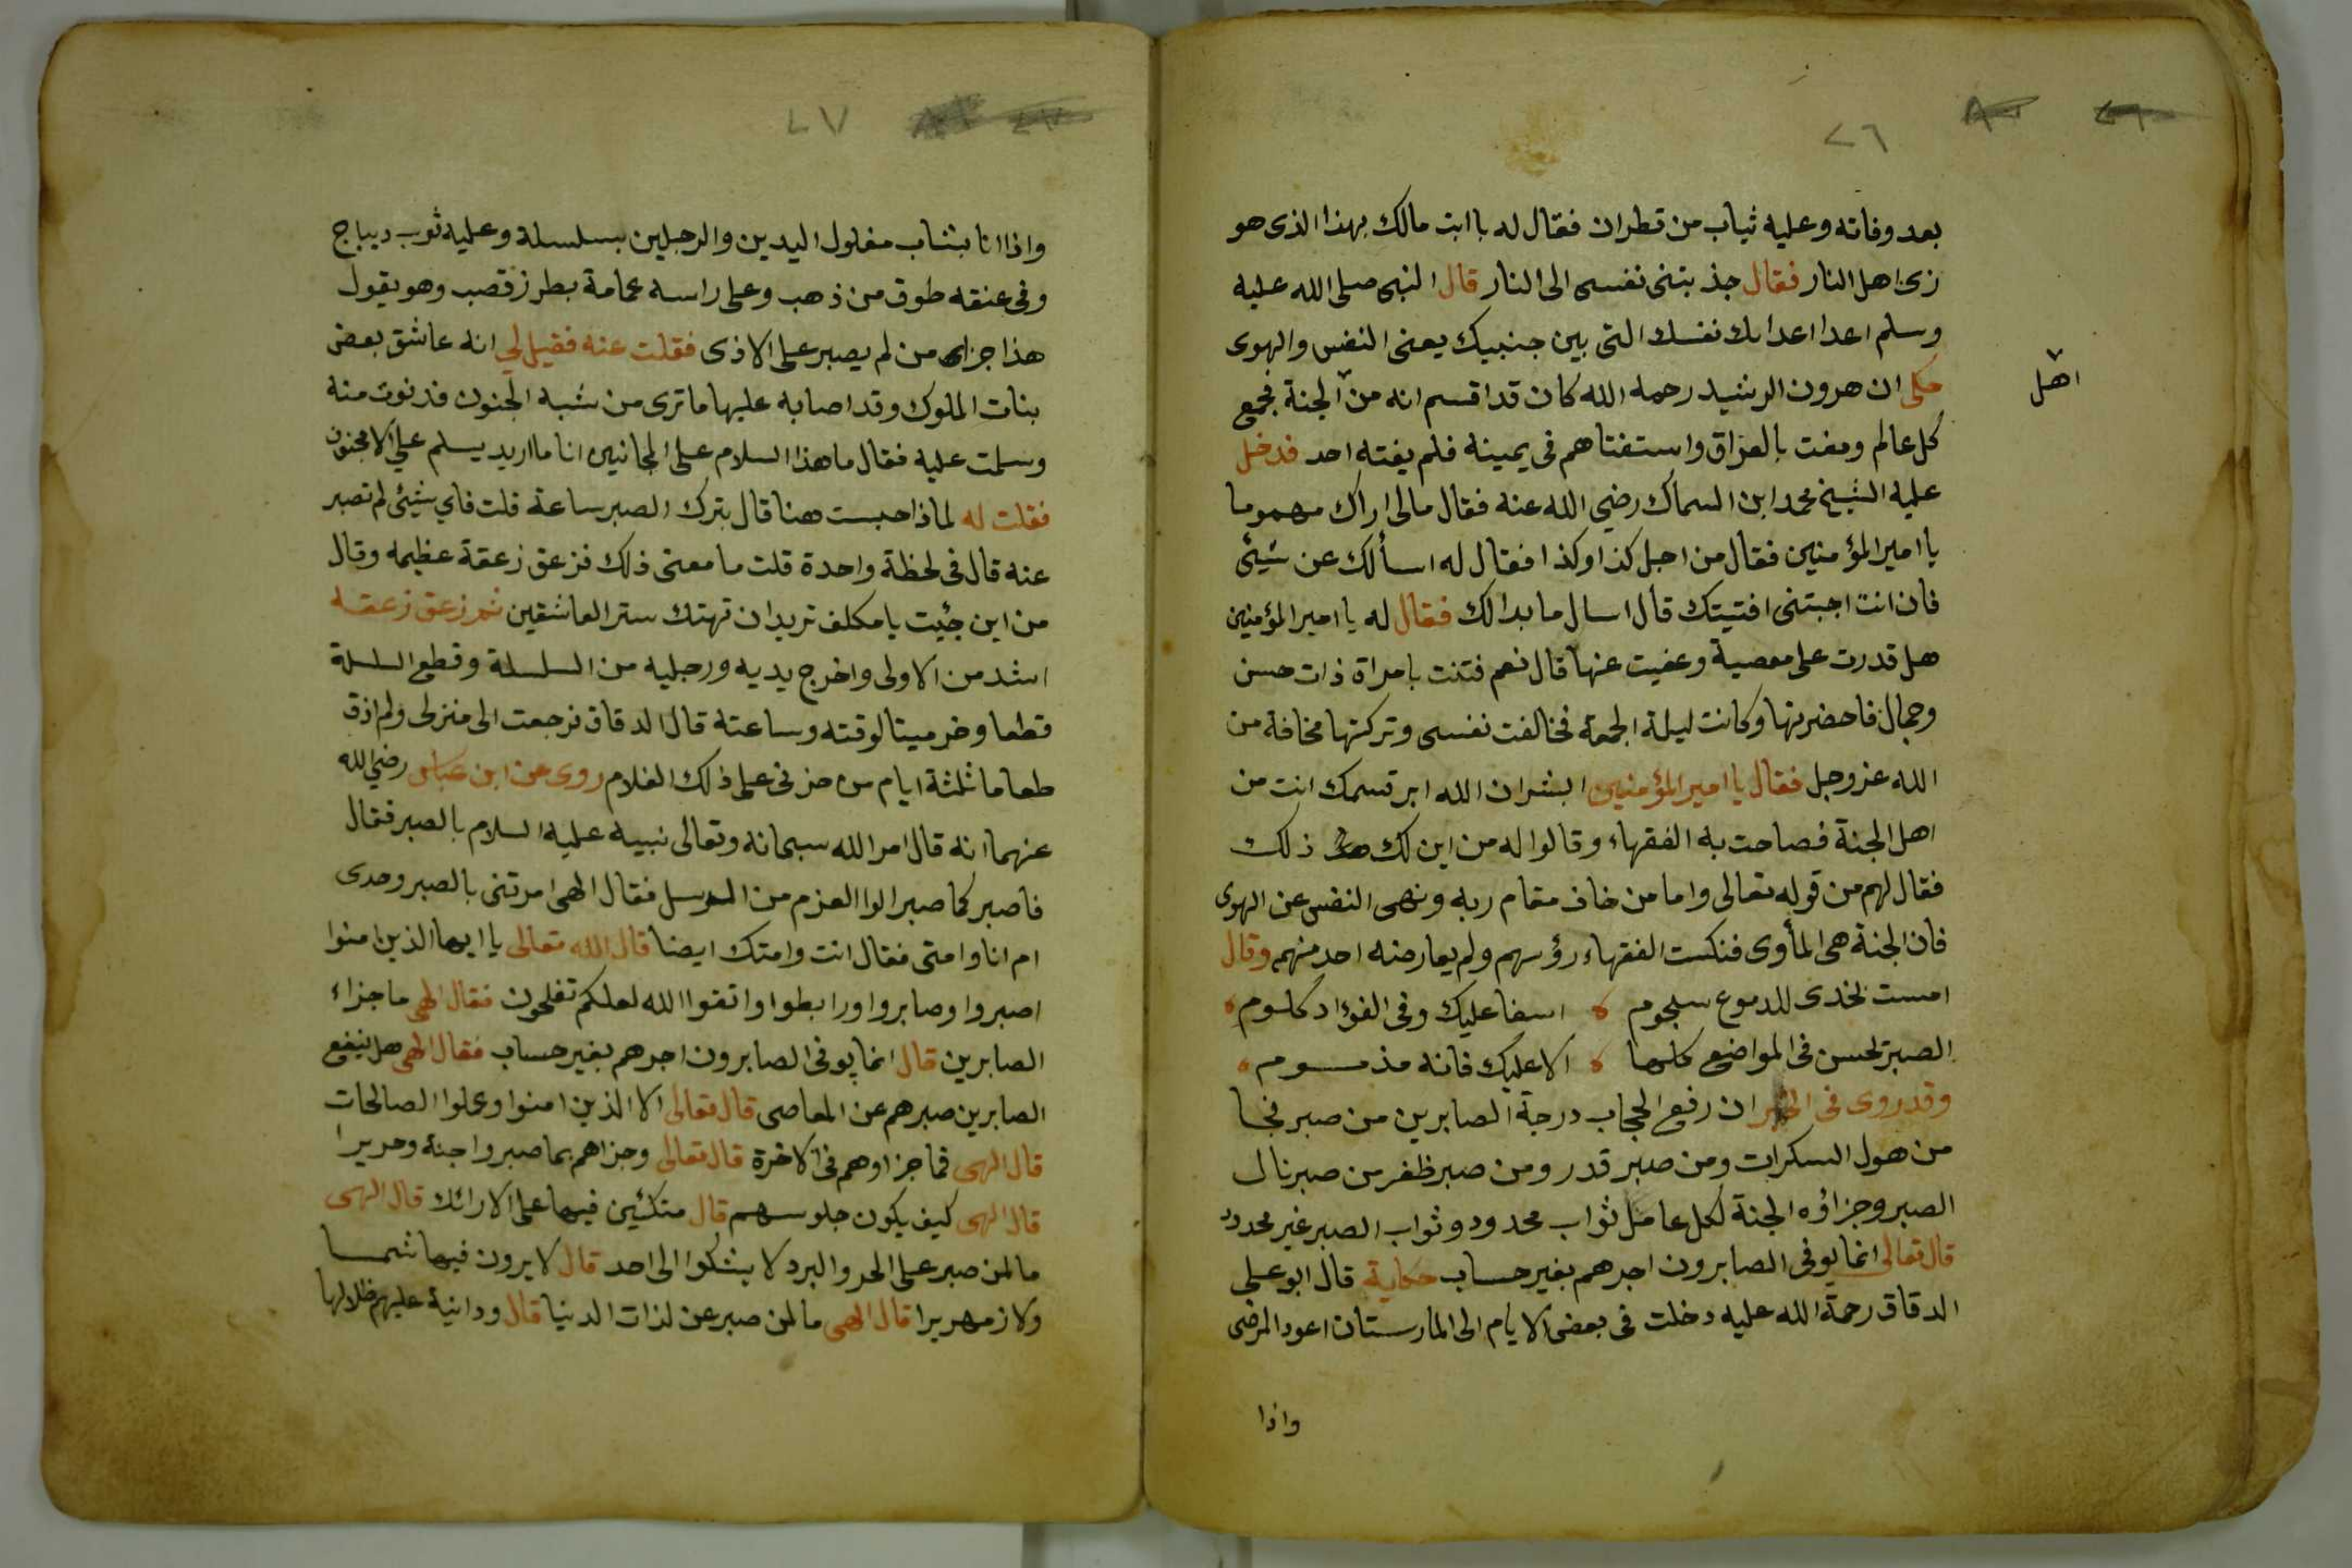 ٢٦
بعد وفاته وعليه ثياب من قطران فقال له يا ابت مالك بهذا الذى هو
زى اهل النار فقال جذبتنى نفسى الى النار قال النبى صلى الله عليه
وسلم اعدا اعدايك نفسك التى بين جنبيك يعنى النفس والهوى
حكى ان هرون الرشيد رحمه الله كان قد اقسم انه من الجنة فجمع
اهل
كل عالم ومفت بالعراق واستفتاهم فى يمينه فلم يفته احد فدخل
عليه الشيخ محمد ابن السماك رضي الله عنه فقال مالى اراك مهموما
يا امير المؤمنين فقال من اجل كذا وكذا فقال له اسألك عن شيئ
فان انت اجبتنى افتيتك قال اسال ما بدا لك فقال له يا امير المؤمنين
هل قدرت على معصية وعفيت عنها قال نعم فتنت بامراة ذات حسن
وجمال فاحضرتها وكانت ليلة الجمعة فخالفت نفسى وتركتها مخافة من
الله عز وجل فقال يا امير المؤمنين ابشر ان الله ابر قسمك انت من
اهل الجنة فصاحت به الفقهاء وقالوا له من اين لك ذلك
فقال لهم من قوله تعالى واما من خاف مقام ربه ونهى النفس عن الهوى
فان الجنة هى المأوى فنكست الفقهاء رؤسهم ولم يعارضه احد منهم وقال
امست بخدى للدموع سلجوم ه اسفا عليك وفى الفؤاد كلوم ه
الصبر يحسن فى المواضع كلها ه الا عليك فانه مذموم ه
وقد روى فى الخبر ان رفع الحجاب درجة الصابرين من صبر نجا
من هول السكرات ومن صبر قدر ومن صبر ظفر من صبر نال
الصبر وجزاؤه الجنة لكل عامل ثواب محدود وثواب الصبر غير محدود
قال تعالى انما يوفى الصابرون اجرهم بغير حساب حكاية قال ابو على
الدقاق رحمة الله عليه دخلت فى بعض الايام الى المارستان اعود المرضى
واذا
٢٧
واذا انا بشاب مغلول اليدين والرجلين بسلسلة وعليه ثوب ديباج
وفى عنقه طوق من ذهب وعلى راسه عمامة بطرز قصب وهو يقول
هذا جزاء من لم يصبر على الاذى فقلت عنه فقيل لي انه عاشق بعض
بنات الملوك وقد اصابه عليها ما ترى من شبه الجنون فدنوت منه
وسلمت عليه فقال ما هذا السلام على المجانين انا ما اريد يسلم علي الا مجنون
فقلت له لماذا حبست هنا قال بترك الصبر ساعة قلت فاي شيئ لم تصبر
عنه قال فى لحظة واحدة قلت ما معنى ذلك فزعق زعقة عظيمه وقال
من اين جئت يا مكلف تريد ان تهتك ستر العاشقين ثم زعق زعقه
اشد من الاولى واخرج يديه ورجليه من السلسلة وقطع السلسلة
قطعا وخر ميتا لوقته وساعته قال الدقاق فرجعت الى منزلى ولم اذق
طعاما ثلثة ايام من حزنى على ذلك الغلام روى عن ابن عباس رضي الله
عنهما انه قال امر الله سبحانه وتعالى نبيه عليه السلام بالصبر فقال
فاصبر كما صبر الوا العزم من الرسل فقال الهى امرتنى بالصبر وحدى
ام انا وامتى فقال انت وامتك ايضا قال الله تعالى يا ايها الذين امنوا
اصبروا وصابروا ورابطوا واتقوا الله لعلكم تفلحون فقال الهى ما جزاء
الصابرين قال انما يوفى الصابرون اجرهم بغير حساب فقال الهى هل ينفع
الصابرين صبرهم عن المعاصى قال تعالى الا الذين امنوا وعملوا الصالحات
قال الهى فما جزاوهم فى الاخرة قال تعالى وجزاهم بما صبروا جنة وحريرا
قال الهى كيف يكون جلوسهم قال متكئين فيها على الارائك قال الهى
ما لمن صبر على الحر والبرد لا يشكوا الى احد قال لا يرون فيها شمسا
ولا زمهريرا قال الهى ما لمن صبر عن لذات الدنيا قال ودانية عليهم ظلالها